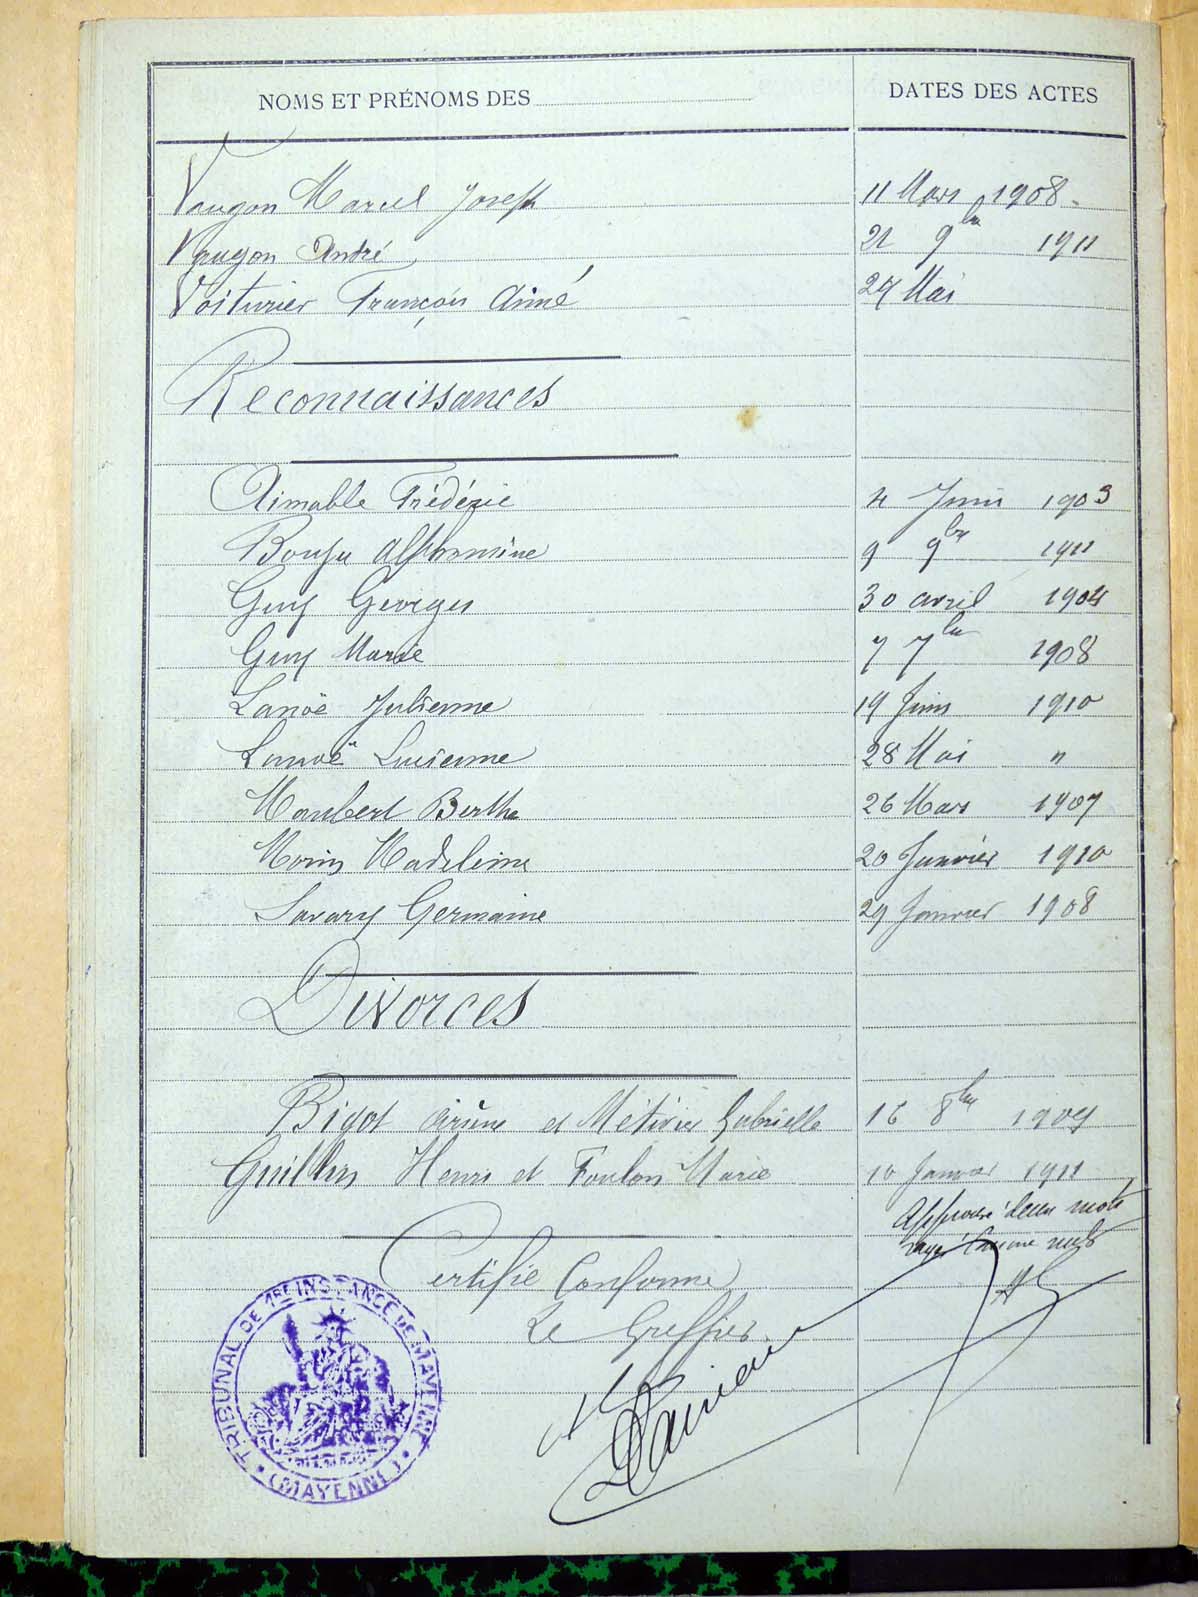 NOMS ET PRÉNOMS DES
DATES DES ACTES
Vaugon Marcel Joseph 11 Mars 1908
Vaugon André 21 9bre 1911
Voiturier François Aimé 24 Mai
Reconnaissances
Aimable Frédéric 4 Juin 1903
Bouju Alphonsine 9 9bre 1911
Guy Georges 30 avril 1904
Guy Marie 7 7bre 1908
Lanoë Julienne 19 Juin 1910
Lanoë Lucienne 28 Mai "
Maubert Berthe 26 Mars 1907
Morin Madeleine 20 Janvier 1910
Savary Germaine 29 Janvier 1908
Divorces
Bigot et Métivier Gabrielle 16 8bre
Henri et Foulon Marie 10 Janvier 1911
Approuvé deux mots
Certifié Conforme
Le Greffier
TRIBUNAL DE 1RE INSTANCE DE MAYENNE
(MAYENNE)